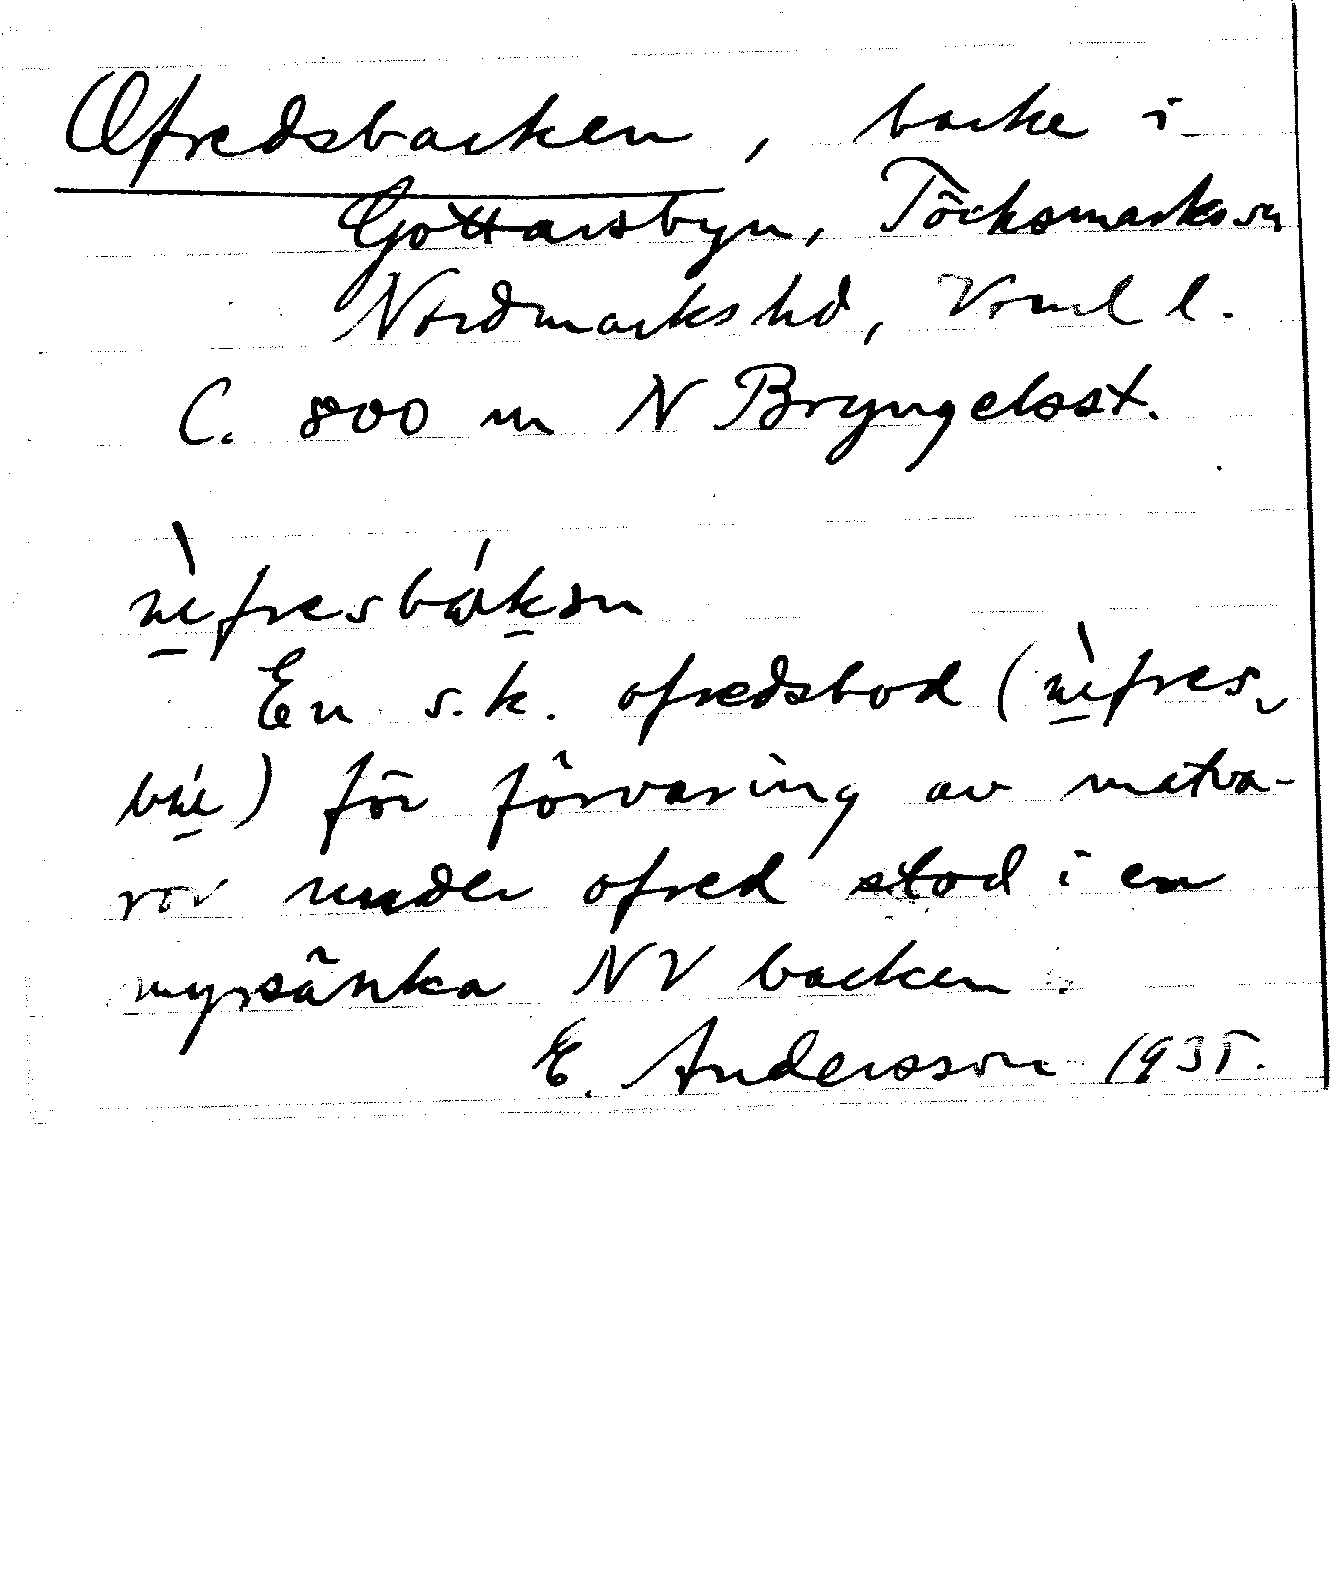 Ofredsbacken, backe i
Gottarsbyn, Töcksmarks sn
Nordmarks hd, Vrml l.
C. 800 m N Bryngelsst.
En s.k. ofredsbod
för förvaring av matva-
ror under ofred stod i en
myrsänka NV backen.
E. Andersson 1935.